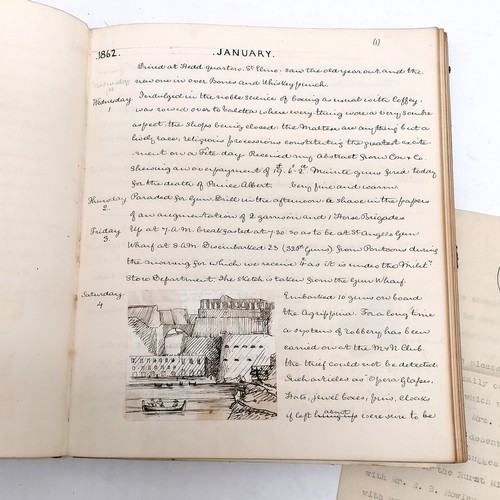 (1)
1862. JANUARY.
Dined at Head quarters. St Elmo; saw the old year out and the
new one in over Bones and Whiskey punch.
Wednesday 1 Indulged in the noble science of boxing as usual with Coffey,
was rowed over to Valetta where every thing wore a very sombre
aspect, the shops being closed: the Maltese are anything but a
lively race, religious processions constituting the greatest excite
ment on a Fête day. Received my Abstract from Cox & Co.
Shewing an overpayment of Minute guns fired today
for the death of Prince Albert. Very fine and warm
Thursday 2 Paraded for Gun Drill in the afternoon & shave in the papers
of an augmentation of 2 garrison and 1 Horse Brigades
Friday 3. Up at 7. A.M. breakfasted at 7.30. so as to be at St Angelo Gun
Wharf at 8 A.M. Disembarked 23 (32 Pr Guns) from Pontoons during
the morning for which we receive as it is under the Milit
Store Department. The Sketch is taken from the Gun Wharf.
Saturday 4 Embarked 10 guns on board
the Agrippina. For a long time
a system of robbery has been
carried on at the M & N Club.
the thief could not be detected.
Such articles as Opera Glasses,
Hats, jewel boxes, pins, cloaks
if left about were sure to be
please
ally
Mrs.
descent
sugges
the Hurst Mi
with Mr.
with